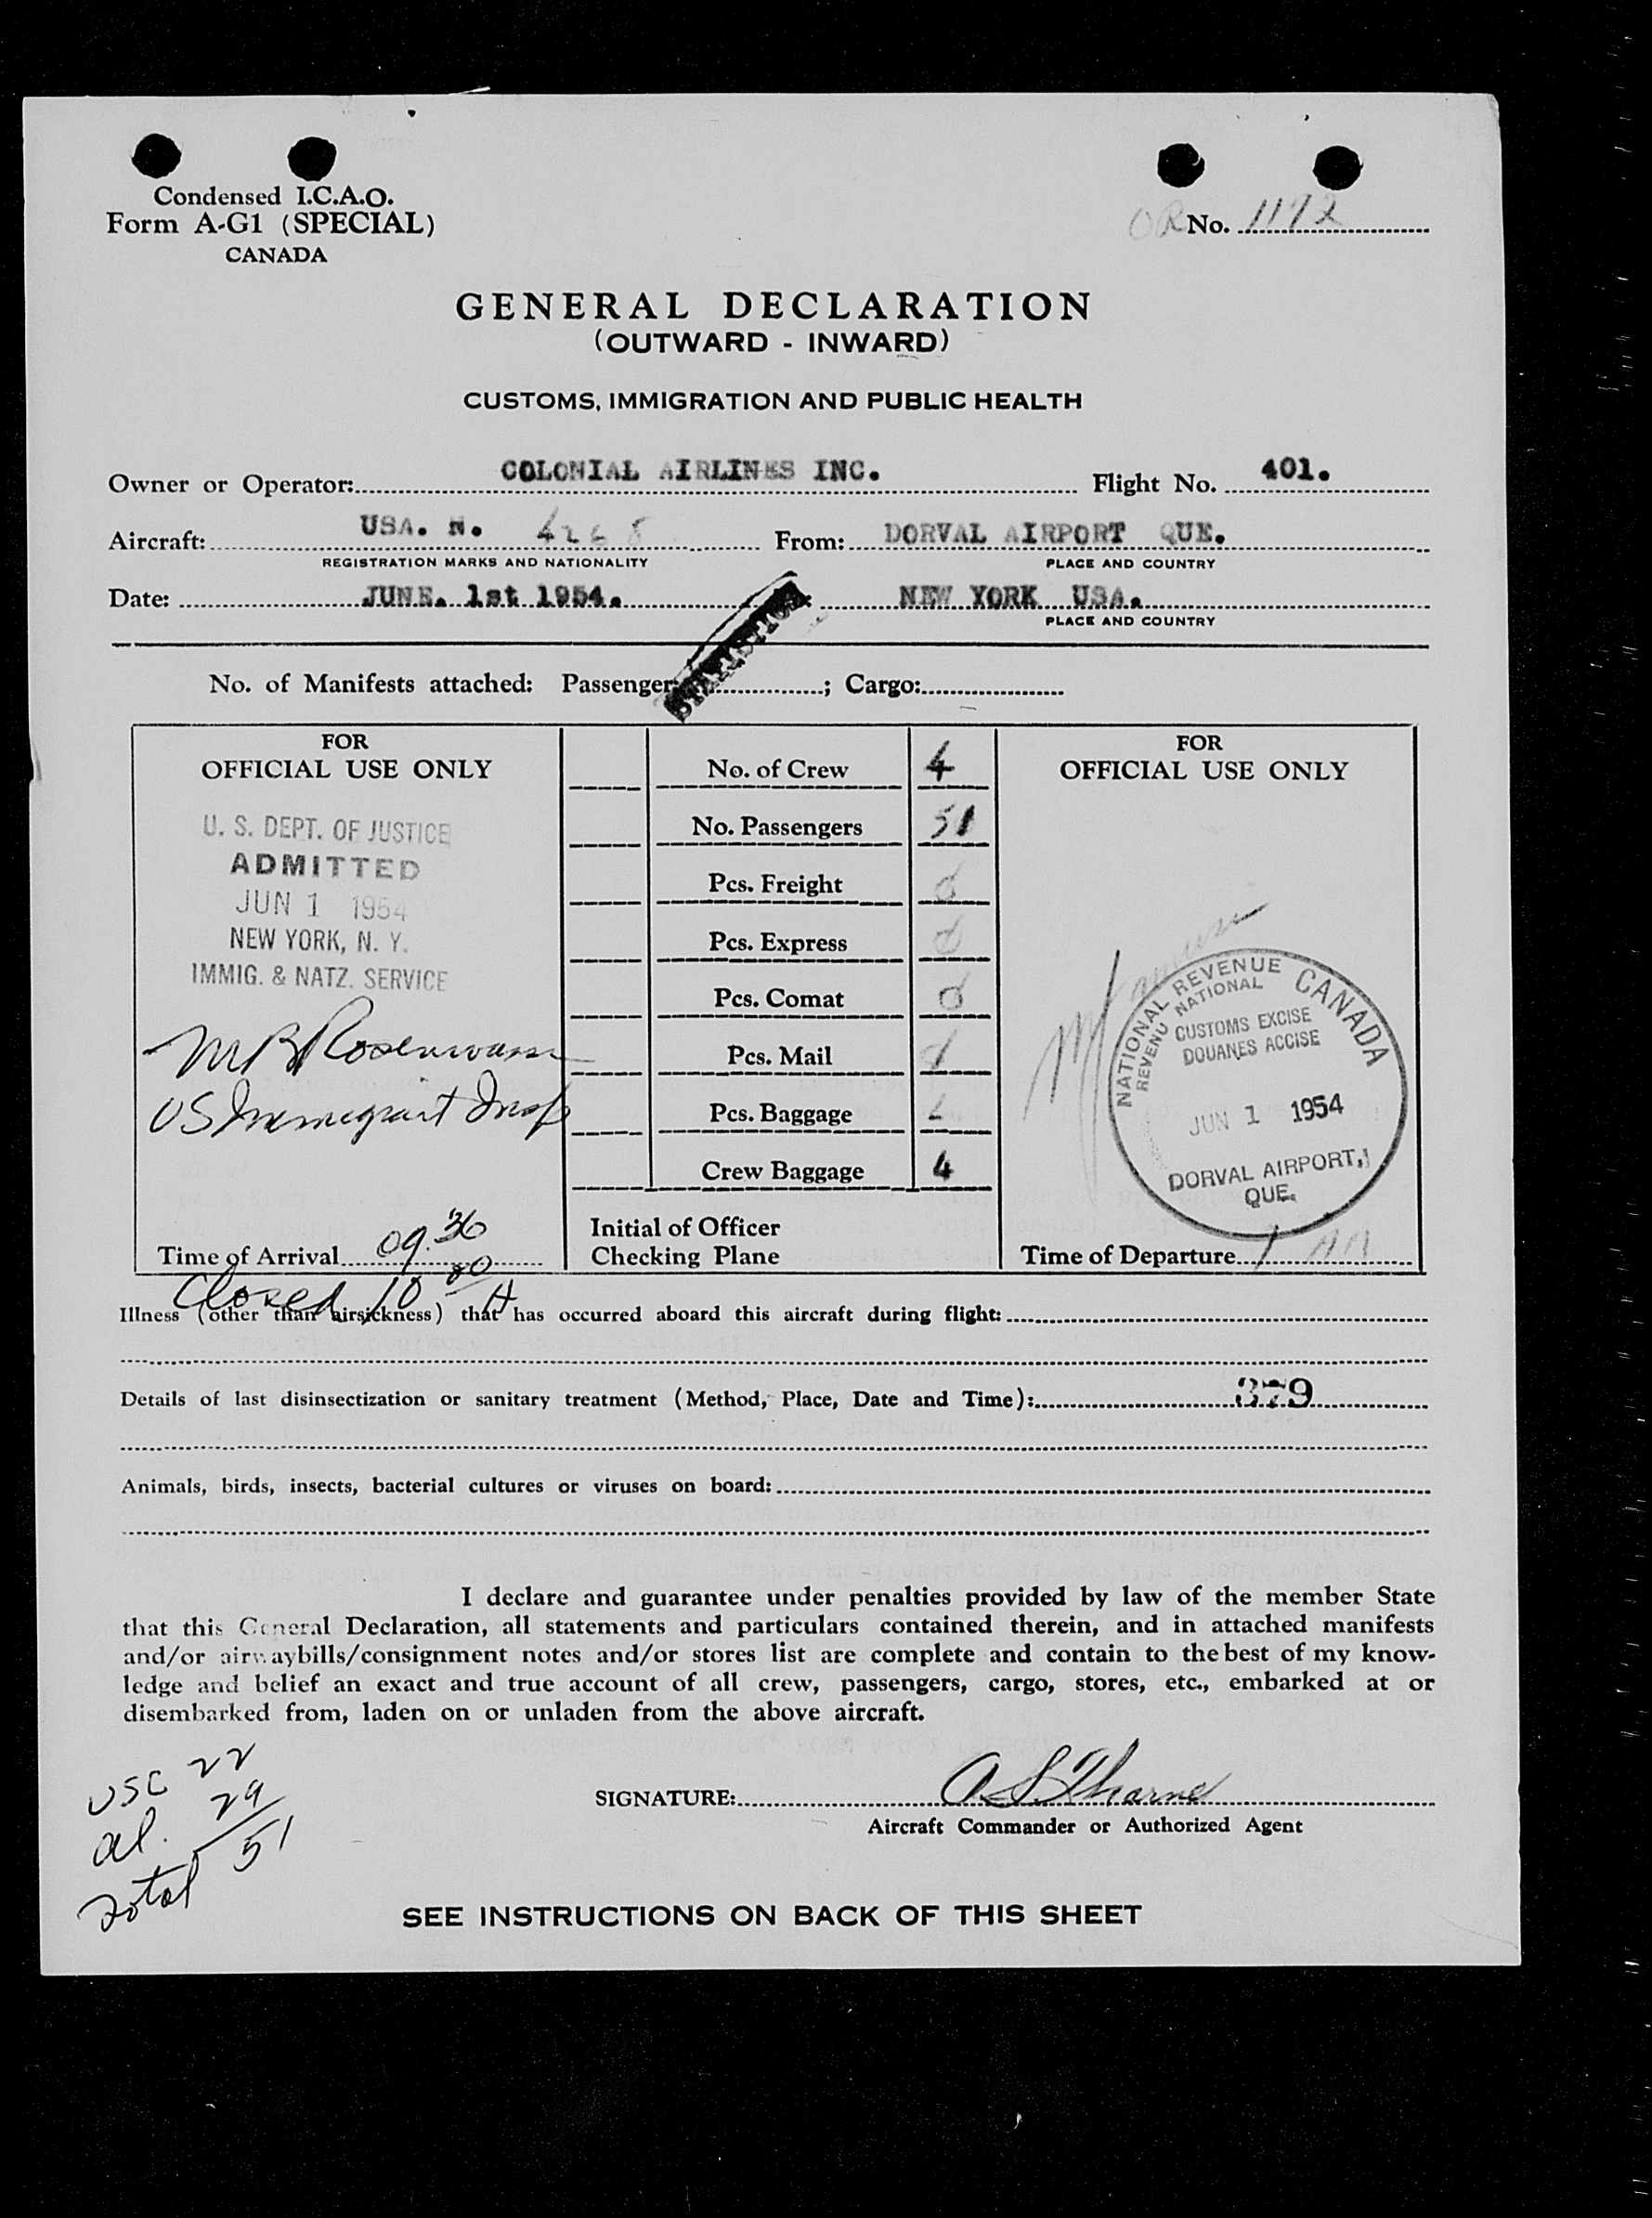 Condensed I.C.A.O.
Form A-G1 (SPECIAL)
CANADA
No. 1172
GENERAL DECLARATION
(OUTWARD - INWARD)
CUSTOMS, IMMIGRATION AND PUBLIC HEALTH
Owner or Operator: COLONIAL AIRLINES INC. Flight No. 401.
Aircraft: USA. N. From: DORVAL AIRPORT QUE.
REGISTRATION MARKS AND NATIONALITY PLACE AND COUNTRY
Date: JUNE. 1st 1954. NEW YORK USA.
PLACE AND COUNTRY
STATISTICS
No. of Manifests attached: Passenger ; Cargo:
FOR
OFFICIAL USE ONLY
U. S. DEPT. OF JUSTICE
ADMITTED
JUN 1 1954
NEW YORK, N. Y.
IMMIG. & NATZ. SERVICE
US Immigrant Insp
Time of Arrival 09.36
Closed 10
No. of Crew 4
No. Passengers 51
Pcs. Freight
Pcs. Express
Pcs. Comat
Pcs. Mail
Pcs. Baggage
Crew Baggage 4
Initial of Officer
Checking Plane
FOR
OFFICIAL USE ONLY
NATIONAL REVENUE CANADA
REVENU NATIONAL
CUSTOMS EXCISE
DOUANES ACCISE
JUN 1 1954
DORVAL AIRPORT,
QUE.
Time of Departure
Illness (other than airsickness) that has occurred aboard this aircraft during flight:
Details of last disinsectization or sanitary treatment (Method, Place, Date and Time): 379
Animals, birds, insects, bacterial cultures or viruses on board:
I declare and guarantee under penalties provided by law of the member State
that this General Declaration, all statements and particulars contained therein, and in attached manifests
and/or airwaybills/consignment notes and/or stores list are complete and contain to the best of my know-
ledge and belief an exact and true account of all crew, passengers, cargo, stores, etc., embarked at or
disembarked from, laden on or unladen from the above aircraft.
USC 22
al. 29
Total 51
SIGNATURE:
Aircraft Commander or Authorized Agent
SEE INSTRUCTIONS ON BACK OF THIS SHEET